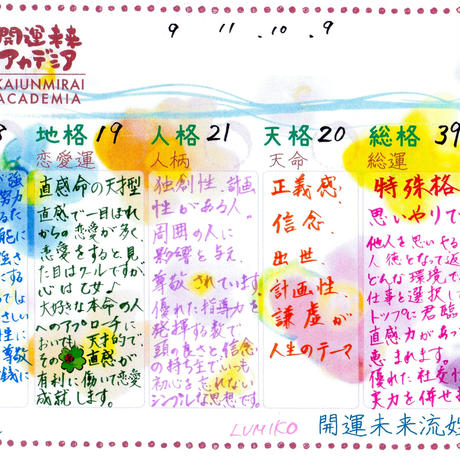 開運未来
アカデミア
KAIUNMIRAI
ACADEMIA
9 11 10 9
地格 19
恋愛運
直感命の天才型
直感で一目ぼれ
からの恋愛が多く、
恋愛をすると見
た目はクールですが
心は乙女♪
大好きな本命の人
へのアプローチに
おいても、天才的で
その直感が
有利に働いて恋愛
成就します。
人格 21
人柄
独創性、計画
性がある人。
周囲の人に
影響を与え、
尊敬されています。
優れた指導力を
発揮する数で
頭の良さと、信念
の持ち主でいつも
初心を忘れない
シンプルな思想です。
天格 20
天命
正義感、
信念、
出世、
計画性、
謙虚が
人生のテーマ
総格 39
総運
特殊格
思いやりで
他人を思いやる
人徳となって返
どんな環境で
仕事を選択して
トップに君臨
直感力があって
恵まれます。
優れた社交性
実力を併せ持
LUMIKO
開運未来流姓